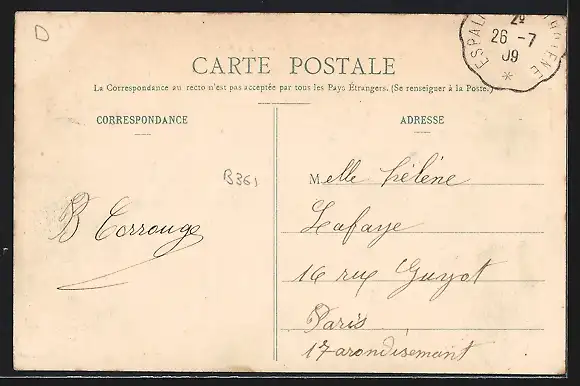 D
2e
26 -7
09
*
CARTE POSTALE
La Correspondance au recto n'est pas acceptée par tous les Pays Étrangers. (Se renseigner à la Poste.)
CORRESPONDANCE
ADRESSE
B361
Melle hélène
Lafaye
B Corrouge
16 rue Guyot
Paris
17 arondisemant